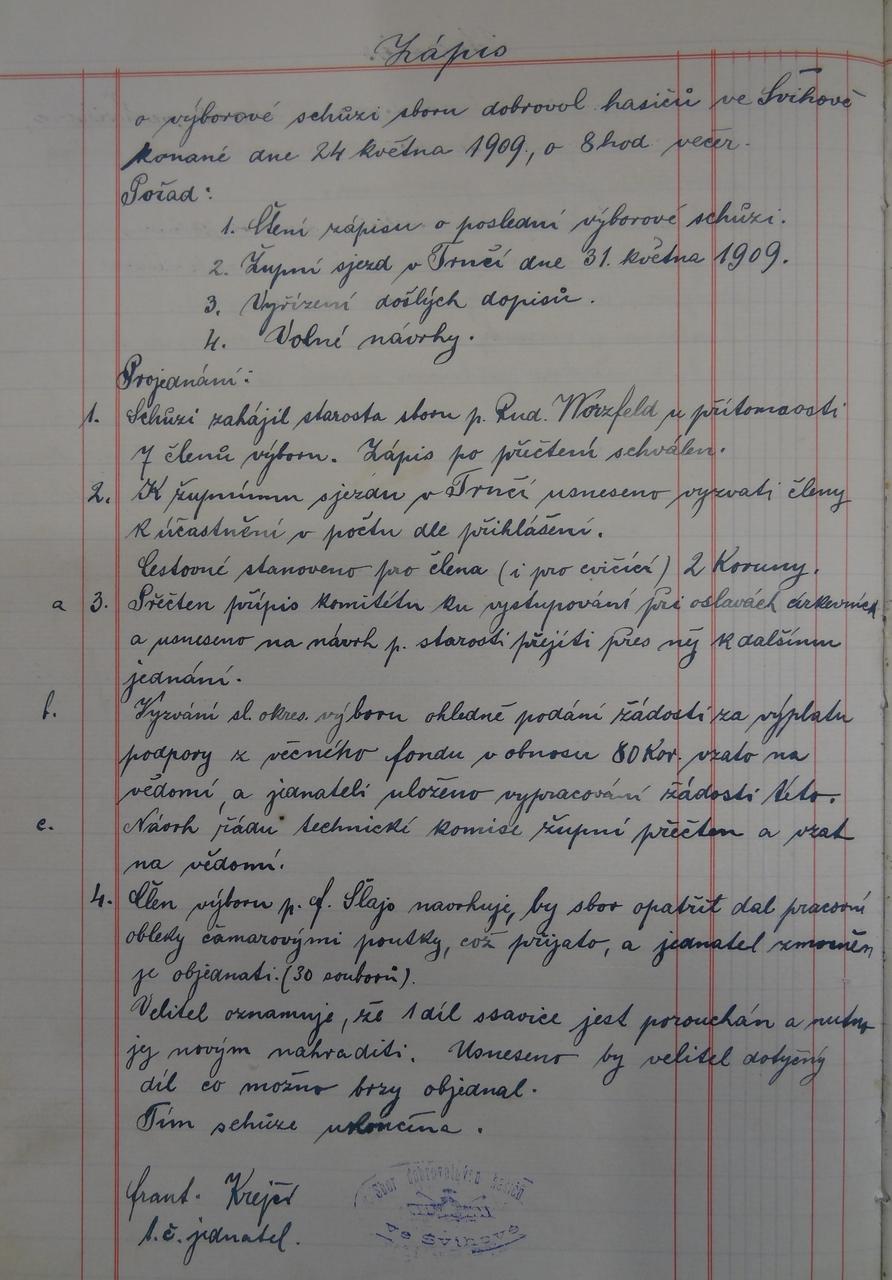 Zápis
o výborové schůzi sboru dobrovol hasičů ve Švihově
konané dne 24 května 1909, o 8 hod večer.
Pořad:
1. Čtení zápisu o poslední výborové schůzi.
2. Župní sjezd v Trnčí dne 31. května 1909.
3. Vyřízení došlých dopisů.
4. Volné návrhy.
Projednání:
1. Schůzi zahájil starosta sboru p. Rud. Worzfeld u přítomnosti
7 členů výboru. Zápis po přečtení schválen.
2. K župnímu sjezdu v Trnčí usneseno vyzvati členy
k účastnění v počtu dle přihlášení.
Cestovné stanoveno pro člena (i pro cvičící) 2 Koruny.
a 3. Přečten přípis komitétu ku vystupování při oslavách církevních
a usneseno na návrh p. starosti přejíti přes něj k dalšímu
jednání.
b. Vyzvání sl. okres. výboru ohledně podání žádosti za výplatu
podpory z věčného fondu v obnosu 80 Kor. vzato na
vědomí a jednateli uloženo vypracování žádosti této.
c. Návrh řádu technické komise župní přečten a vzat
na vědomí.
4. Člen výboru p. J. Šlajs navrhuje, by sbor opatřit dal pracovní
obleky čamarovými poutky, což přijato, a jednatel zmocněn
je objednati. (30 souborů).
Velitel oznamuje, že 1 díl ssavice jest porouchán a nutno
jej novým nahraditi. Usneseno by velitel dotyčný
díl co možno brzy objednal.
Tím schůze ukončena.
Frant. Krejčí
t. č. jednatel.
Sbor dobrovolných hasičů
ve Švihově